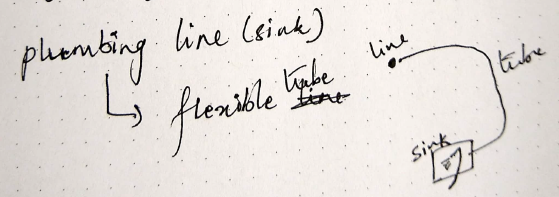 plumbing line (sink)
↳ flexible tube
line
tube
sink